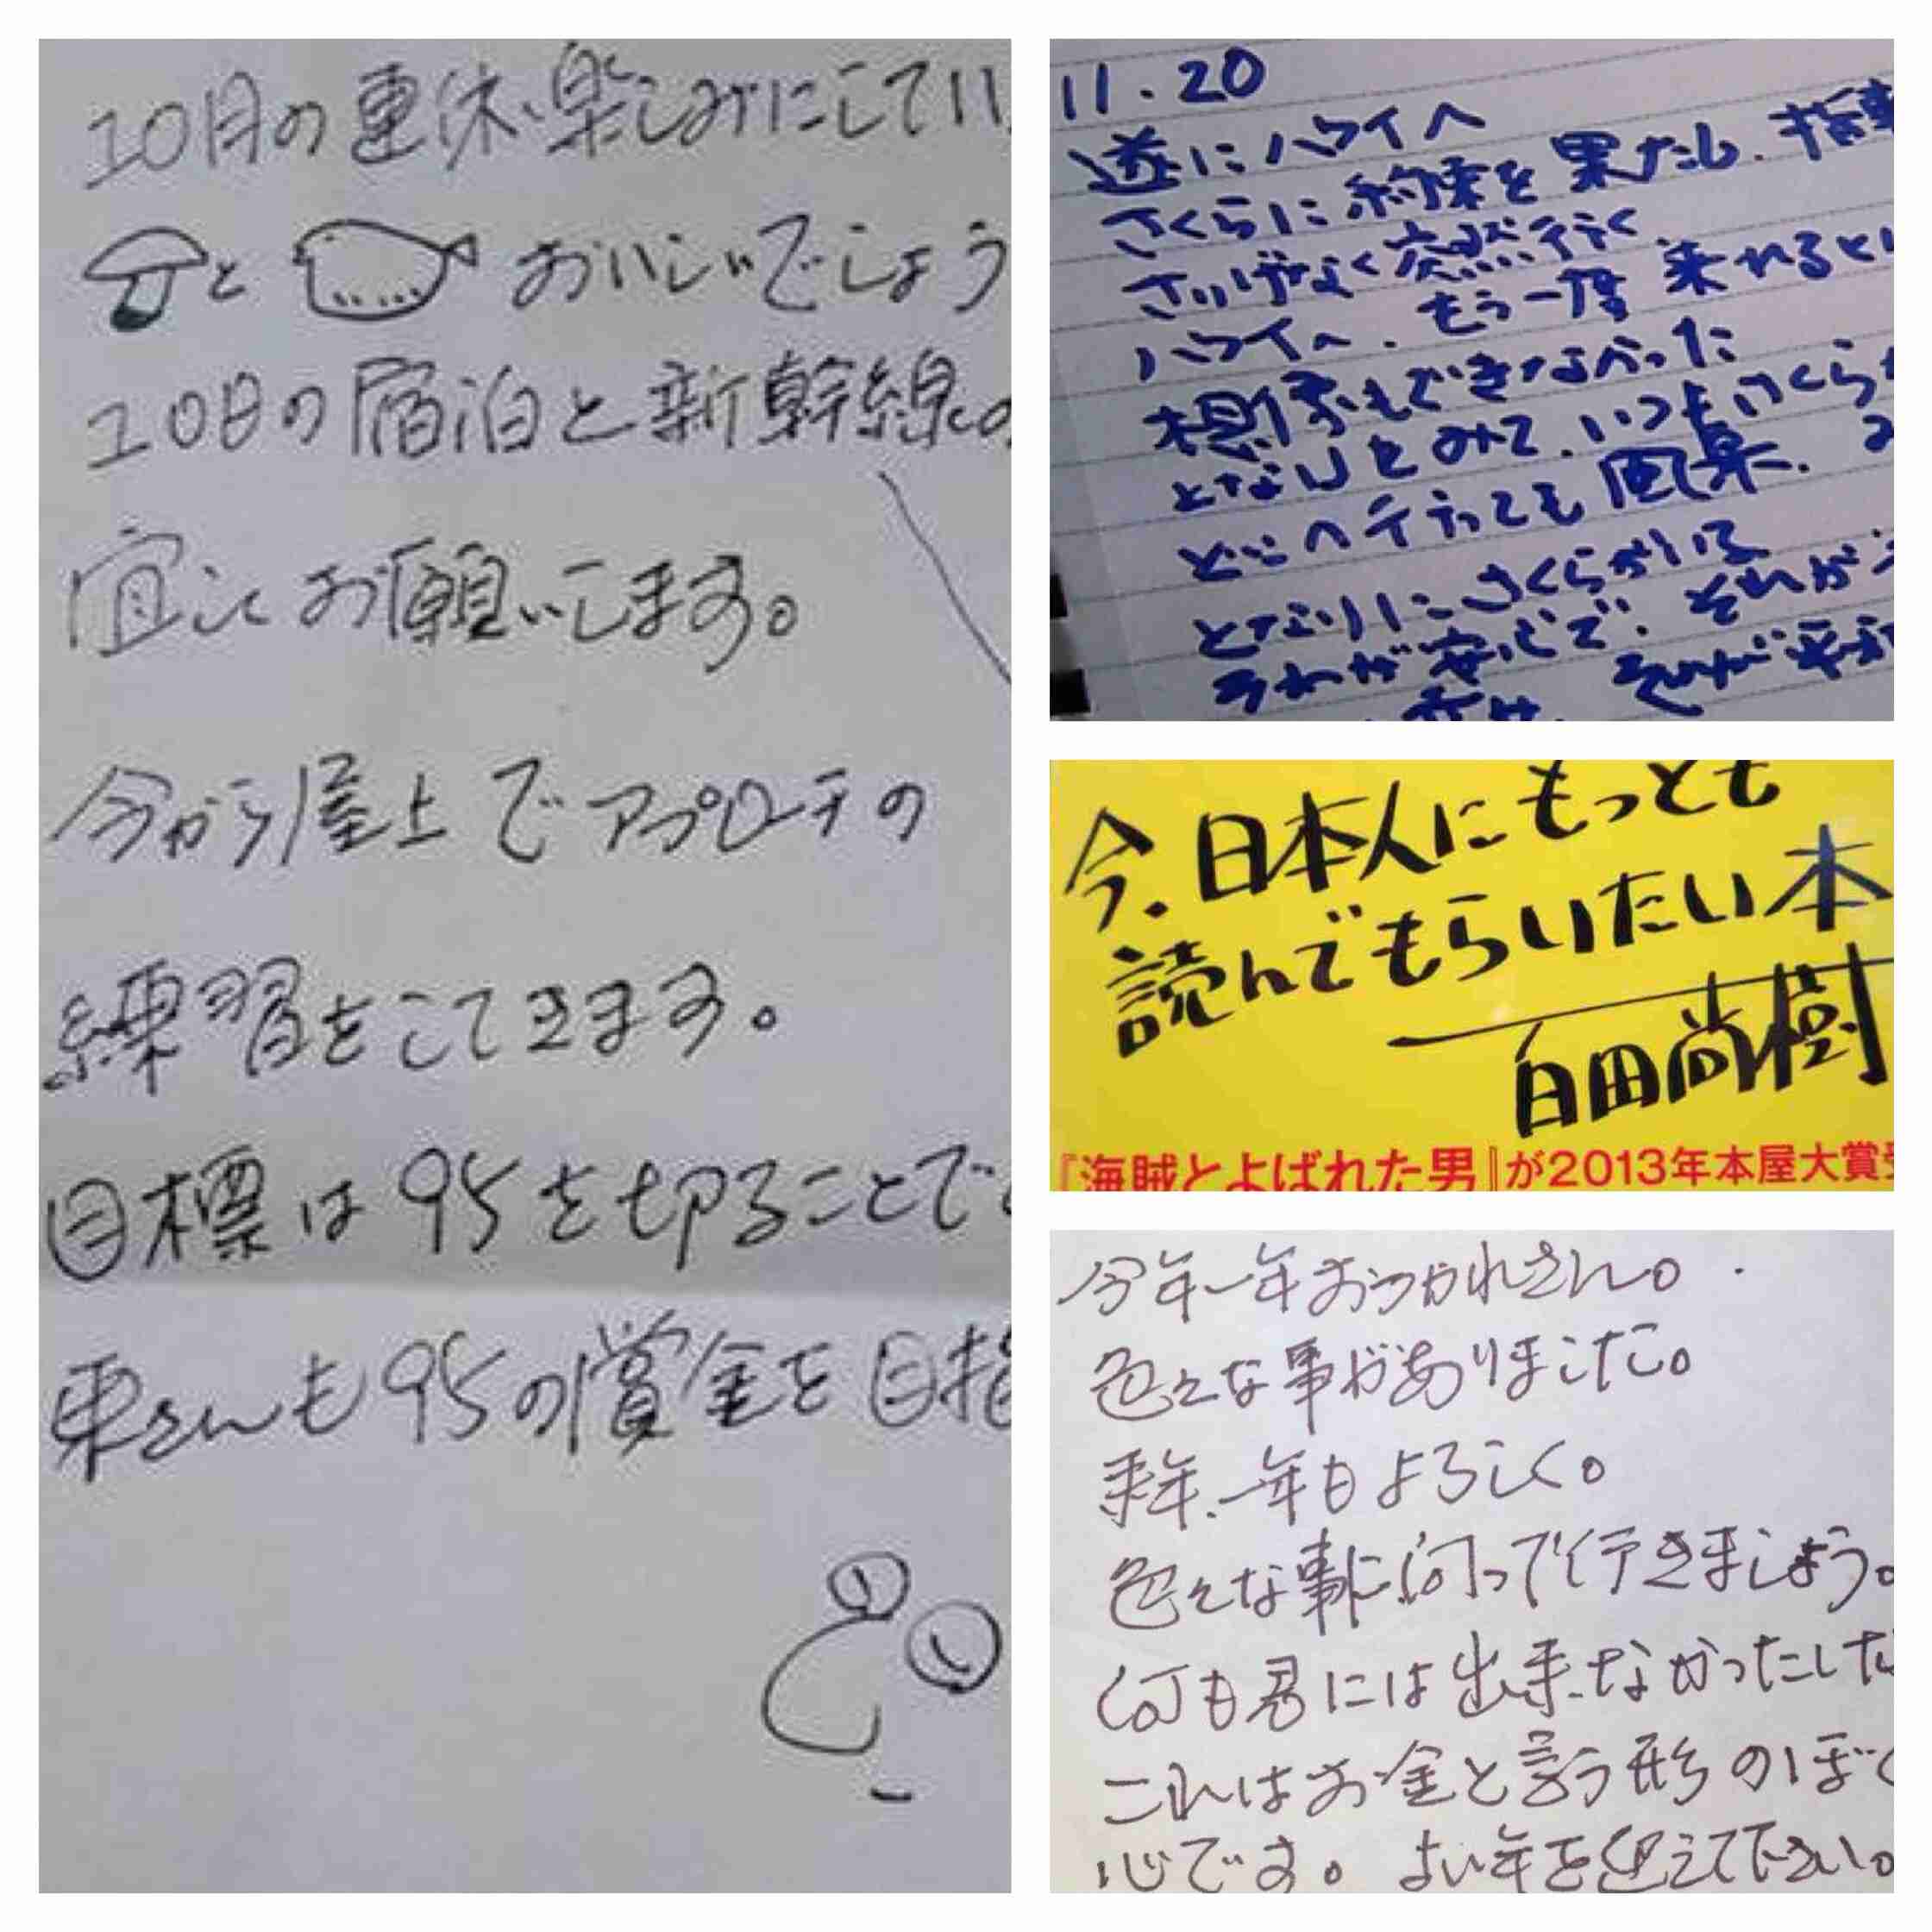 10月の連休、楽しみにしてい
と おいしいでしょう
10日の宿泊と新幹線の
宜しくお願いします。
今から屋上でアプローチの
練習をしてきます。
目標は95を切ることで
東さんも95の賞金を目指
11.20
遂にハワイへ
さくらに約束を果たし、指輪
さりげなく突然行く
ハワイへ、もう一度来れると
想像もできなかった
となりをみて、いつもさくらが
どこへ行っても風景、
となりにさくらがいる
それが安心で、それが
幸せ、それが平和
今、日本人にもっとも
読んでもらいたい本
百田尚樹
『海賊とよばれた男』が2013年本屋大賞
今年一年おつかれさん。
色々な事がありました。
来年、一年もよろしく。
色々な事に向って行きましょう。
何も君には出来なかったした
これはお金と言う形のぼく
心です。よい年を迎えて下さい。